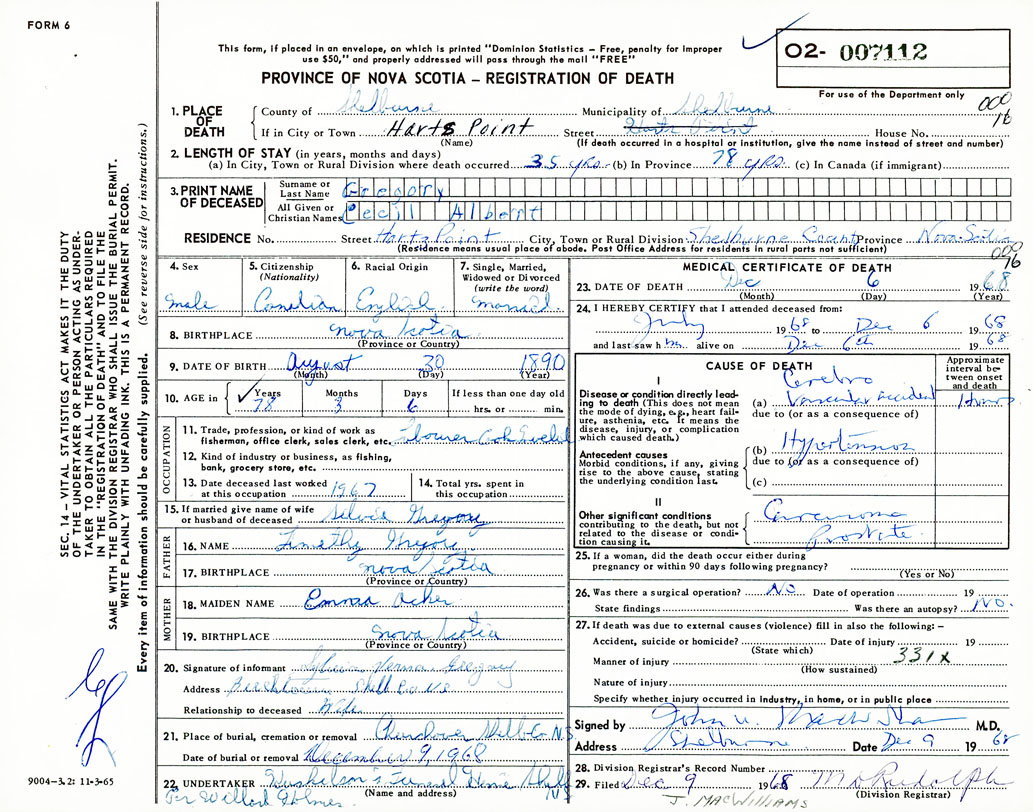 FORM 6
This form, if placed in an envelope, on which is printed "Dominion Statistics – Free, penalty for improper
use $50," and properly addressed will pass through the mail "FREE"
O2- 007112
PROVINCE OF NOVA SCOTIA – REGISTRATION OF DEATH
For use of the Department only
1. PLACE OF DEATH
County of Shelburne Municipality of Shelburne
If in City or Town Harts Point Street Harts Point House No.
(Name) (If death occurred in a hospital or institution, give the name instead of street and number)
2. LENGTH OF STAY (in years, months and days)
(a) In City, Town or Rural Division where death occurred 35 yrs (b) In Province 78 yrs (c) In Canada (if immigrant)
3. PRINT NAME OF DECEASED
Surname or Last Name Gregory
All Given or Christian Names Cecil Albert
RESIDENCE No. Street Harts Point City, Town or Rural Division Shelburne County Province Nova Scotia
(Residence means usual place of abode. Post Office Address for residents in rural parts not sufficient)
4. Sex
male
5. Citizenship
(Nationality)
Canadian
6. Racial Origin
English
7. Single, Married,
Widowed or Divorced
(write the word)
married
8. BIRTHPLACE nova scotia
(Province or Country)
9. DATE OF BIRTH August 30 1890
(Month) (Day) (Year)
10. AGE in
Years Months Days If less than one day old
78 3 6 hrs. or min.
OCCUPATION
11. Trade, profession, or kind of work as
fisherman, office clerk, sales clerk, etc.
12. Kind of industry or business, as fishing,
bank, grocery store, etc.
13. Date deceased last worked
at this occupation 1967
14. Total yrs. spent in
this occupation
15. If married give name of wife
or husband of deceased Silvia Gregory
FATHER
16. NAME Timothy Gregory
17. BIRTHPLACE nova scotia
(Province or Country)
MOTHER
18. MAIDEN NAME Emma Acker
19. BIRTHPLACE nova scotia
(Province or Country)
20. Signature of informant Sylvia Verma Gregory
Address Birchtown Shel Co NS
Relationship to deceased Wife
21. Place of burial, cremation or removal Churchover Shelb Co N.S.
Date of burial or removal December 9, 1968
22. UNDERTAKER Funeral Home Shelb
(Name and address) N.S.
Per Willard Holmes
MEDICAL CERTIFICATE OF DEATH
23. DATE OF DEATH Dec 6 1968
(Month) (Day) (Year)
24. I HEREBY CERTIFY that I attended deceased from:
July 1968 to Dec 6 1968
and last saw him alive on Dec 6th 1968
CAUSE OF DEATH
Approximate interval between onset and death
I
Disease or condition directly leading to death (This does not mean
the mode of dying, e.g., heart failure, asthenia, etc. It means the
disease, injury, or complication
which caused death.)
(a) Cerebro Vascular accident
due to (or as a consequence of)
Antecedent causes
Morbid conditions, if any, giving
rise to the above cause, stating
the underlying condition last.
(b) Hypertension
due to (or as a consequence of)
(c)
II
Other significant conditions
contributing to the death, but not
related to the disease or condition causing it.
Carcinoma
Prostate
25. If a woman, did the death occur either during
pregnancy or within 90 days following pregnancy?
(Yes or No)
26. Was there a surgical operation? NO Date of operation 19
State findings Was there an autopsy? NO.
27. If death was due to external causes (violence) fill in also the following: –
Accident, suicide or homicide? Date of injury 19
(State which)
331X
Manner of injury
(How sustained)
Nature of injury
Specify whether injury occurred in Industry, in home, or in public place
Signed by John M.D.
Address Shelburne Date Dec 9 1968
28. Division Registrar's Record Number
29. Filed Dec 9 1968 M Rudolph
(Division Registrar)
J. MACWILLIAMS
SEC. 14 – VITAL STATISTICS ACT MAKES IT THE DUTY
OF THE UNDERTAKER OR PERSON ACTING AS UNDER-
TAKER TO OBTAIN ALL THE PARTICULARS REQUIRED
IN THE "REGISTRATION OF DEATH" AND TO FILE THE
SAME WITH THE DIVISION REGISTRAR WHO SHALL ISSUE THE BURIAL PERMIT.
WRITE PLAINLY WITH UNFADING INK. THIS IS A PERMANENT RECORD.
Every item of information should be carefully supplied. (See reverse side for instructions.)
9004-3.2: 11-3-65